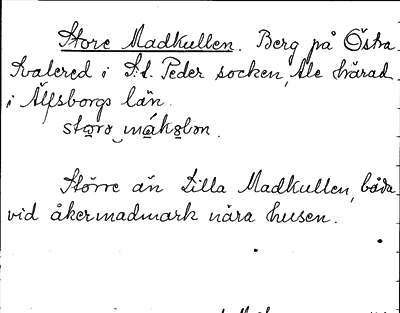 Store Madkullen. Berg på Östra
Kvalered i S:t. Peder socken, Ale härad
i Älfsborgs län.
Större än Lilla Madkullen, båda
vid åkermadmark nära husen.